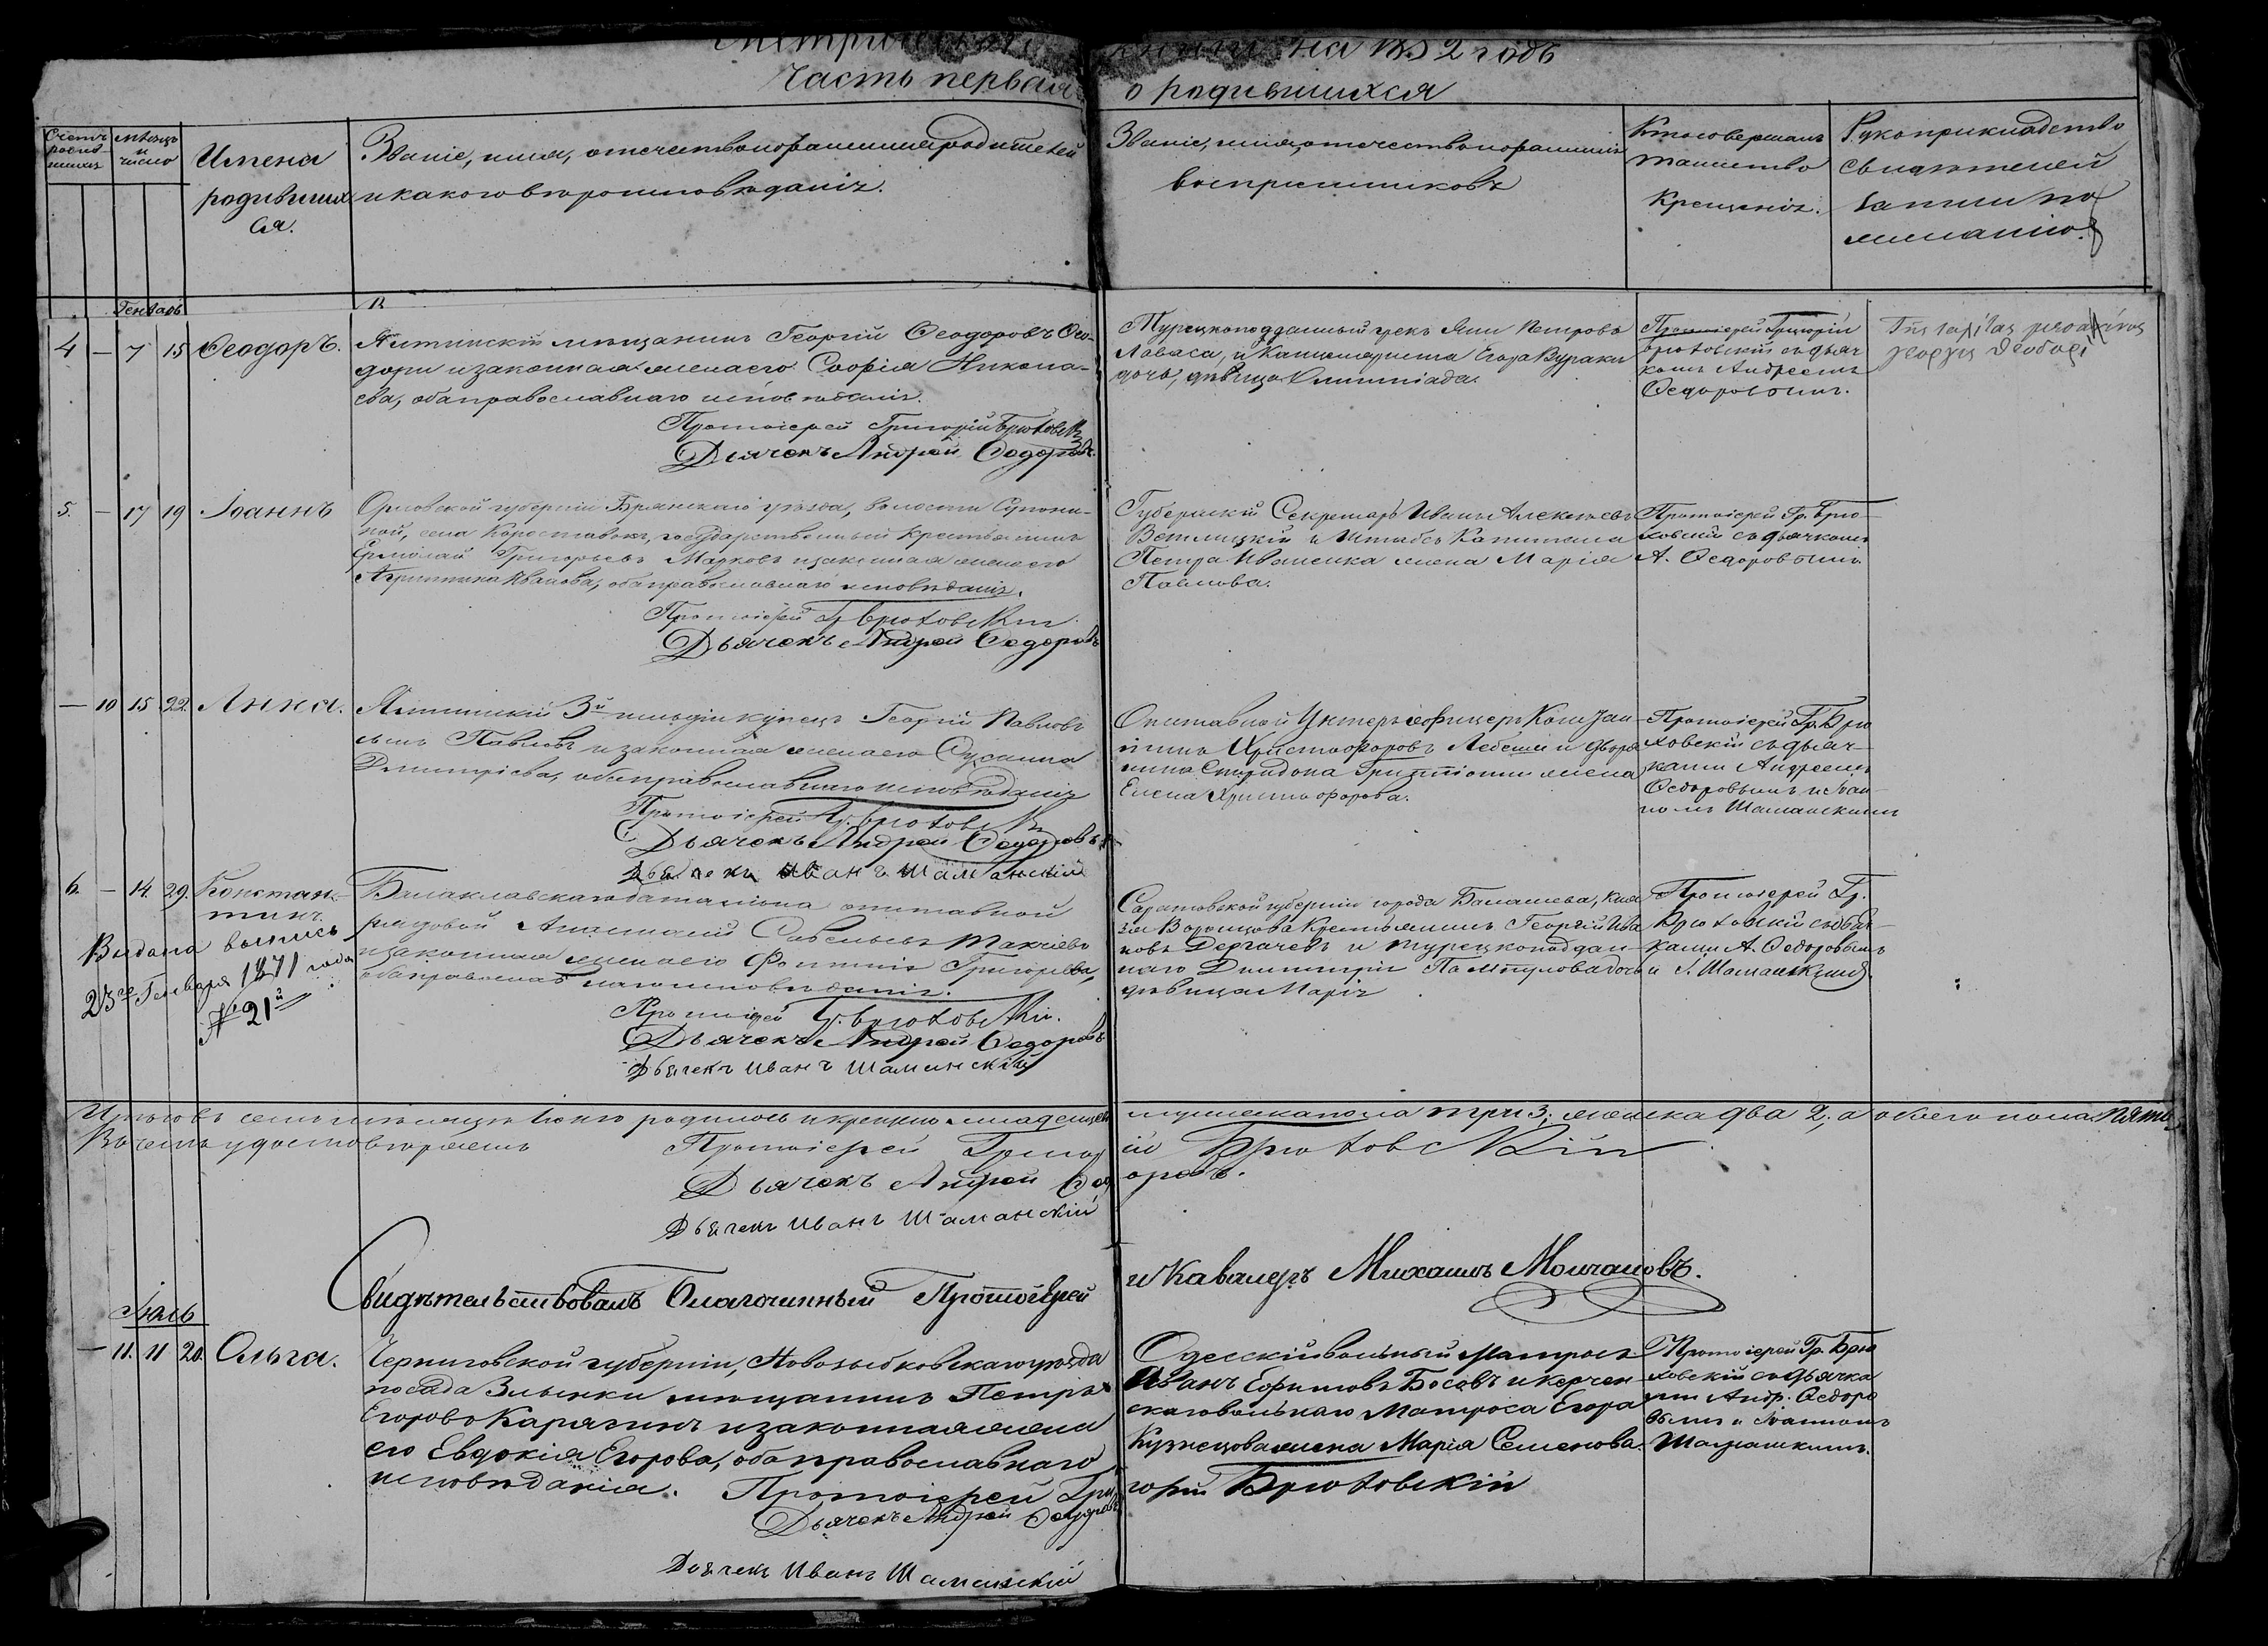 Метрической книги на 1852 годъ
Часть первая о родившихся
Счетъ родившихся
Мѣсяцъ и число
Имена родившихся.
Званіе, имя, отечество и фамилія родителей
и какого вѣроисповѣданія.
Званіе, имя, отечество и фамилія
воспріемниковъ
Кто совершалъ
таинство
Крещенія.
Рукоприкладство
свидѣтелей
записи по
желанію.
4 — 7 15 Ѳеодоръ.
Ялтинскій мѣщанинъ Георгій Ѳеодоровъ Ѳео-
дори и законная жена его Софія Никола-
ева, оба православнаго исповѣданія.
Протоіерей Григорій Брюховскій
Дьячекъ Андрей Ѳедоровъ.
Турецкоподданный грекъ Яни Петровъ
Лаваса, и Канцеляриста Егора Вураки
дочь, дѣвица Олимпіада.
Протоіерей Григорій
Брюховскій съ дьяч-
комъ Андреемъ
Ѳедоровымъ.
5. — 17 19 Іоаннъ
Орловской губерніи Брянскаго уѣзда, волости Супони-
ной, села государственный крестьянинъ
Ермолай Григорьевъ Марковъ и законная жена его
Агриппина Иванова, оба православнаго исповѣданія.
Протоіерей Гр. Брюховскій
Дьячекъ Андрей Ѳедоровъ
Губернскій Секретарь Иванъ Алексѣевъ
Ветлицкій и Штабсъ Капитана
Петра Иваненка жена Марія
Павлова.
Протоіерей Гр. Брю-
ховскій съ дьячкомъ
А. Ѳедоровымъ.
— 10 15 22. Анна.
Ялтинскій 3й гильдіи купецъ Георгій Павловъ
сынъ Павловъ и законная жена его Сусанна
Дмитріева, оба православнаго исповѣданія
Протоіерей Гр. Брюховскій
Дьячекъ Андрей Ѳедоровъ
Дьячекъ Иванъ Шаманскій
Отставной Унтеръ-офицеръ
Христофоровъ и дворя-
нина Спиридона жена
Елена Христофорова.
Протоіерей Гр. Брю
ховскій съ дьяч-
ками Андреемъ
Ѳедоровымъ и Іоан-
номъ Шаманскимъ
6. — 14. 29. Констан-
тинъ.
Выдана выпись
23го Генваря 1871 года
№ 21й
Балаклавскаго баталіона отставной
рядовой Анастасій Савельевъ
и законная жена его Фотинія Григорьева,
оба православнаго исповѣданія.
Протоіерей Гр. Брюховскій.
Дьячекъ Андрей Ѳедоровъ
Дьячекъ Иванъ Шаманскій
Саратовской губерніи города Балашева, Кня-
зя Воронцова Крестьянинъ Георгій Ива
новъ Дергачевъ и турецкоподдан-
наго Дмитрія дочь
дѣвица Марія
Протоіерей Гр.
Брюховскій съ дьяч-
ками А. Ѳедоровымъ
и І. Шаманскимъ.
Итого въ семъ мѣсяцѣ Іюнѣ родилось и крещено младенцевъ мужеска пола три 3; женска два 2; а обоего пола пять
Въ чемъ удостовѣряемъ
Протоіерей Григорій Брюховскій
Дьячекъ Андрей Ѳедоровъ.
Дьячекъ Иванъ Шаманскій
Свидѣтельствовалъ Благочинный Протоіерей и Кавалеръ Михаилъ Молчановъ.
Іюль
— 11. 11 20. Ольга.
Черниговской губерніи, Новозыбковскаго уѣзда
посада Злынки мѣщанинъ Петръ
Егоровъ Карягинъ и законная жена
его Евдокія Егорова, оба православнаго
исповѣданія. Протоіерей Григорій Брюховскій
Дьячекъ Андрей Ѳедоровъ
Дьячекъ Иванъ Шаманскій
Одесскій вольный Матросъ
Иванъ Ефимовъ Босовъ и керчен
скаго вольнаго Матроса Егора
Кузнецова жена Марія Семенова.
Протоіерей Гр. Брю
ховскій съ дьячка
ми Андр. Ѳедоро
вымъ и Іоанномъ
Шаманскимъ.